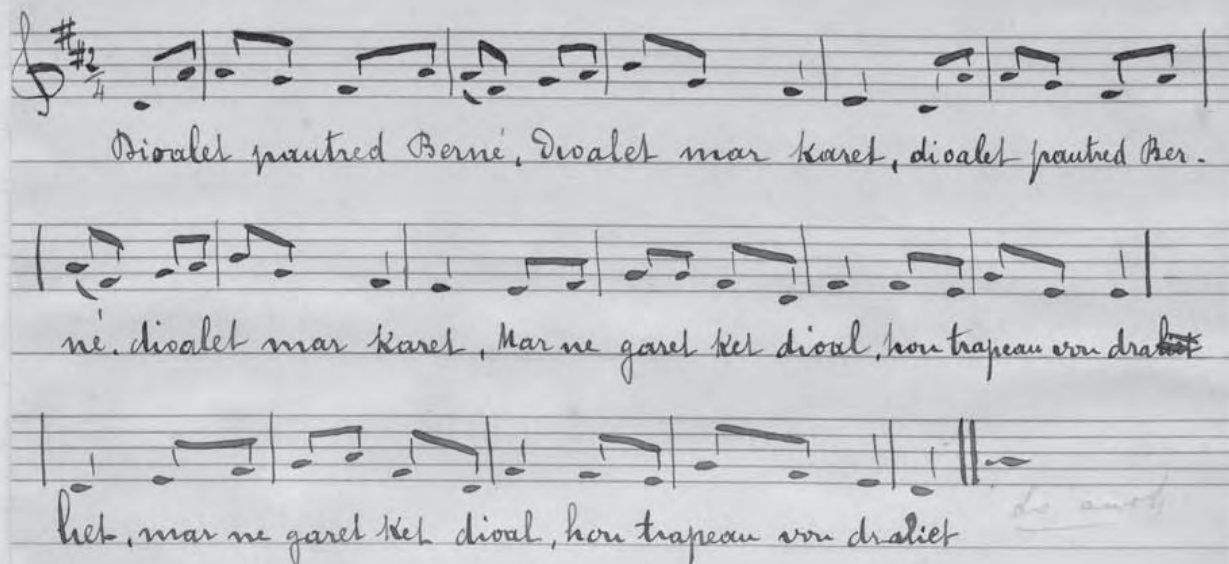 2/4
Divalet pautred Berné, Divalet mar karet, divalet pautred Ber-
né. divalet mar karet, Mar ne garet ket dioal, hou trapeau vou dra
het, mar ne garet ket dioal, hou trapeau vou draliet